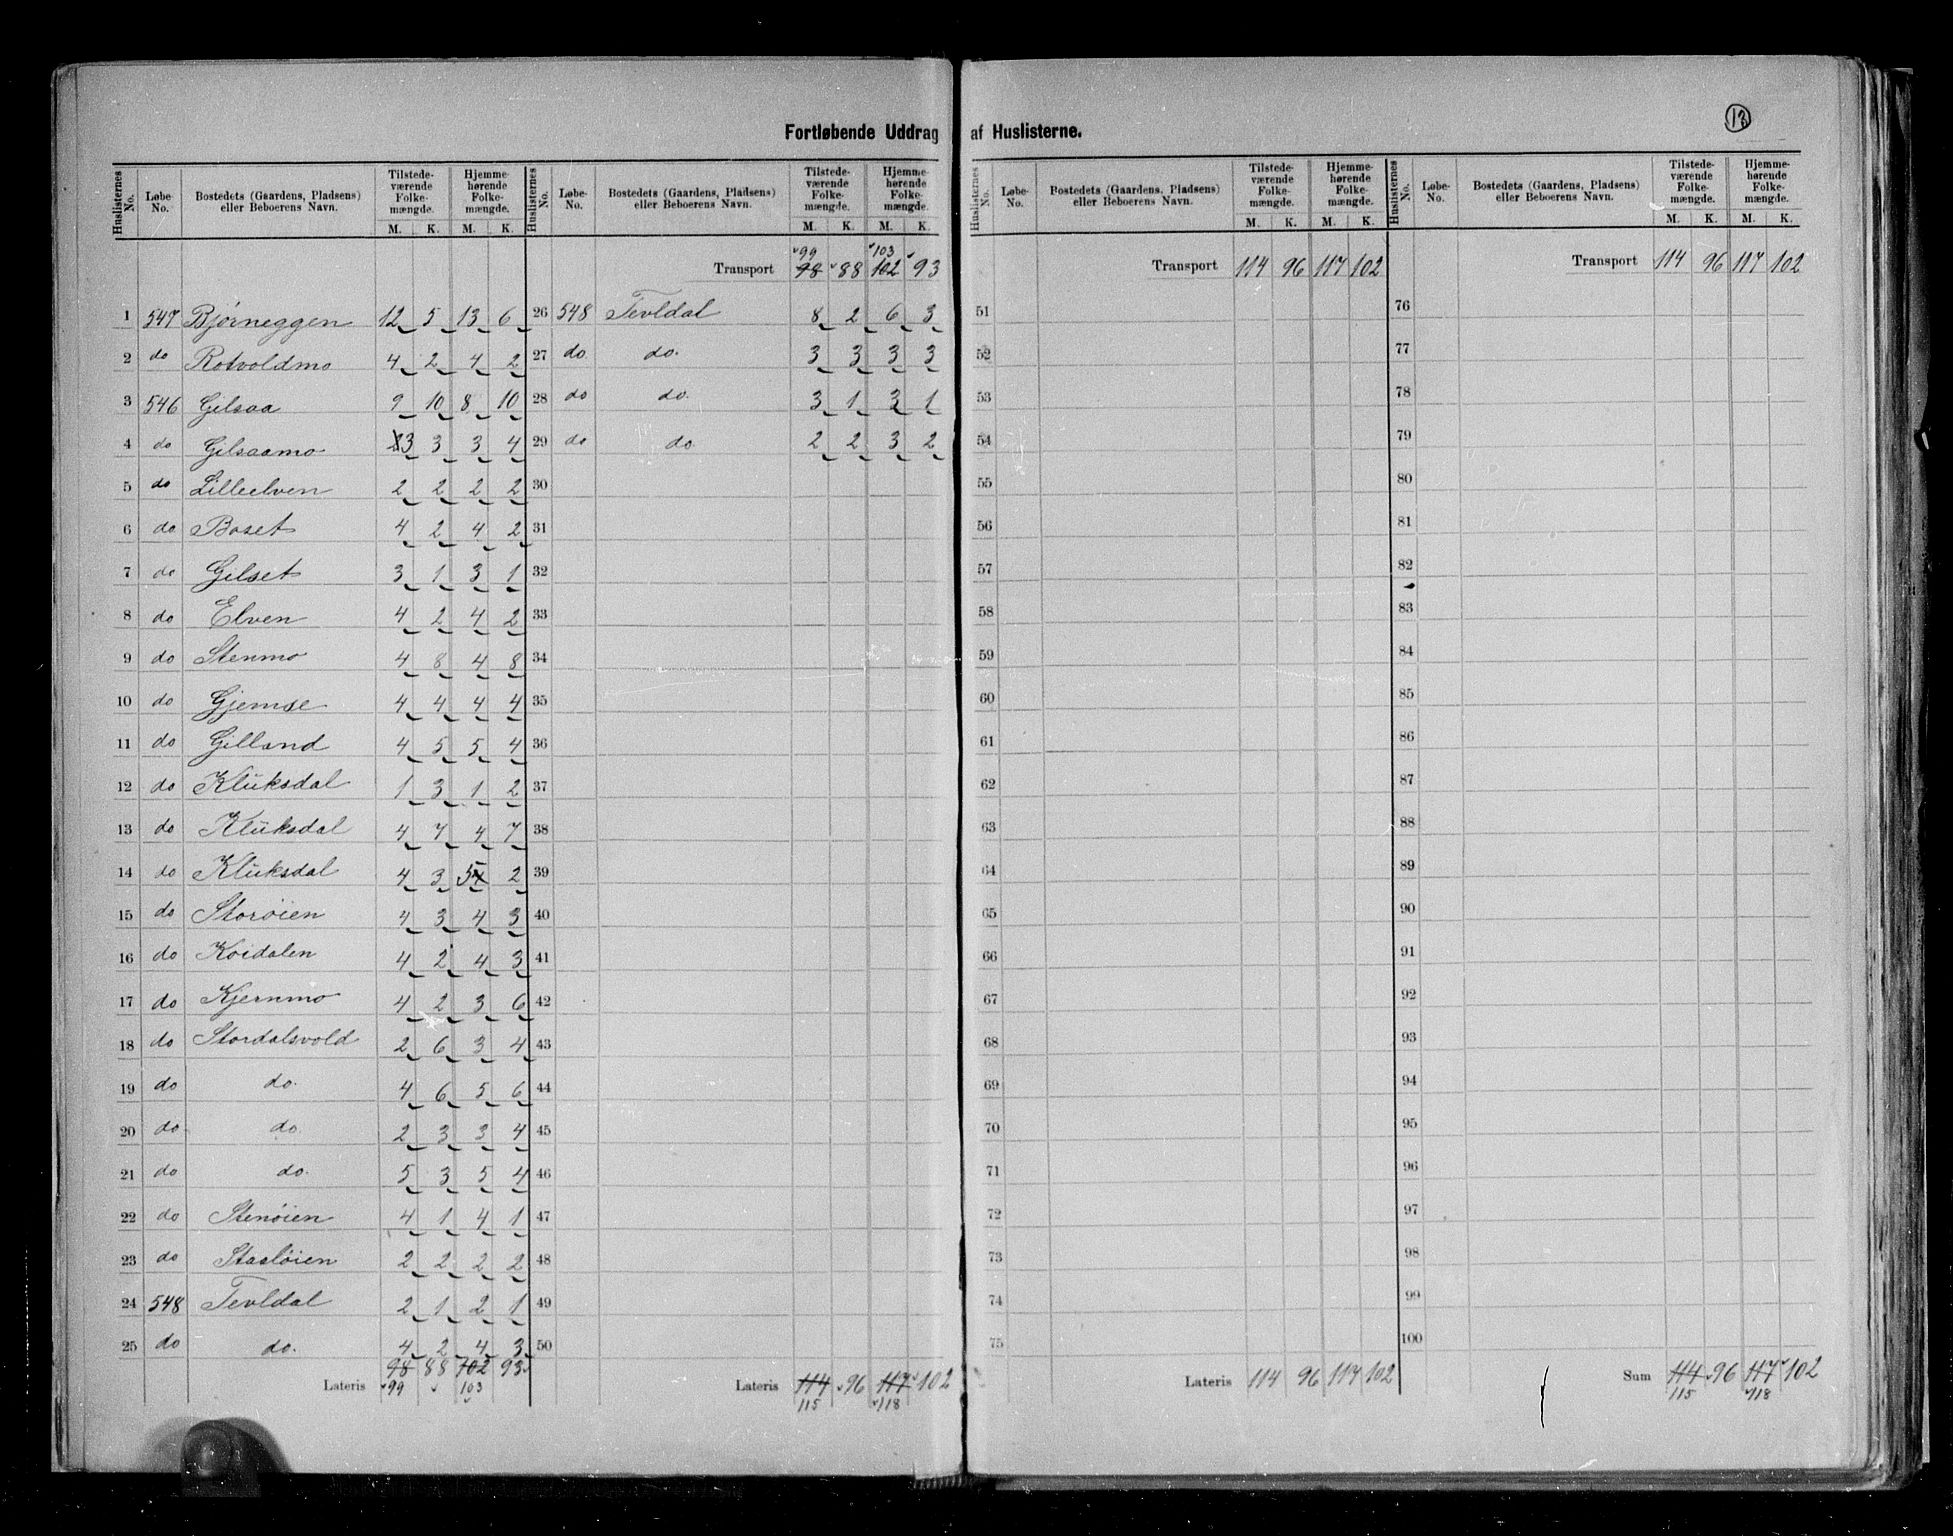 Fortløbende Uddrag af Huslisterne.
13
Huslisternes No. | Løbe-No. | Bostedets (Gaardens, Pladsens) eller Beboerens Navn. | Tilstedeværende Folkemængde. M. K. | Hjemmehørende Folkemængde. M. K.
1 547 Bjørneggen 12 5 13 6
2 do Rotvoldmo 4 2 4 2
3 546 Gilsaa 9 10 8 10
4 do Gilsaamo 3 3 3 4
5 do Lilleelven 2 2 2 2
6 do Boset 4 2 4 2
7 do Gilset 3 1 3 1
8 do Elven 4 2 4 2
9 do Stenmo 4 8 4 8
10 do Gjemse 4 4 4 4
11 do Gilland 4 5 5 4
12 do Klüksdal 1 3 1 2
13 do Klüksdal 4 7 4 7
14 do Klüksdal 4 3 5 2
15 do Storøien 4 3 4 3
16 do Koidalen 4 2 4 3
17 do Kjernmo 4 2 3 6
18 do Stordalsvold 2 6 3 4
19 do do. 4 6 5 6
20 do do. 2 3 3 4
21 do do. 5 3 5 4
22 do Stenøien 4 1 4 1
23 do Stasløien 2 2 2 2
24 548 Tevldal 2 1 2 1
25 do do. 4 2 4 3
Lateris 98 88 102 93
99 103
Huslisternes No. | Løbe-No. | Bostedets (Gaardens, Pladsens) eller Beboerens Navn. | Tilstedeværende Folkemængde. M. K. | Hjemmehørende Folkemængde. M. K.
99 103
Transport 98 88 102 93
26 548 Tevldal 8 2 6 3
27 do do. 3 3 3 3
28 do do. 3 1 3 1
29 do do. 2 2 3 2
30
31
32
33
34
35
36
37
38
39
40
41
42
43
44
45
46
47
48
49
50
Lateris 114 96 117 102
115 118
Huslisternes No. | Løbe-No. | Bostedets (Gaardens, Pladsens) eller Beboerens Navn. | Tilstedeværende Folkemængde. M. K. | Hjemmehørende Folkemængde. M. K.
Transport 114 96 117 102
51
52
53
54
55
56
57
58
59
60
61
62
63
64
65
66
67
68
69
70
71
72
73
74
75
Lateris 114 96 117 102
Huslisternes No. | Løbe-No. | Bostedets (Gaardens, Pladsens) eller Beboerens Navn. | Tilstedeværende Folkemængde. M. K. | Hjemmehørende Folkemængde. M. K.
Transport 114 96 117 102
76
77
78
79
80
81
82
83
84
85
86
87
88
89
90
91
92
93
94
95
96
97
98
99
100
Sum 114 96 117 102
115 118